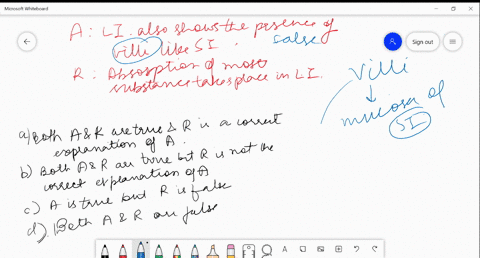 Microsoft Whiteboard
A: LI also shows the presence of
villi like SI. False
R: Absorption of most
substance takes place in LI.
Sign out
villi
mucosa of
SI
a) Both A & R are true & R is a correct
explanation of A.
b) Both A & R are true but R is not the
correct explanation of A
c) A is true but R is false
d) Both A & R are false